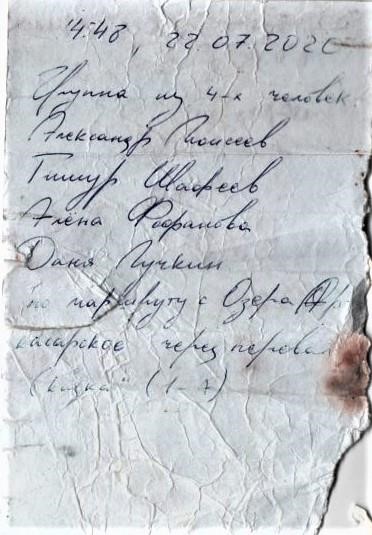 4:48, 22.07.202
Группа из 4-х человек
Александр Моисеев
Тимур
Алёна Фофанова
Даня Пучкин
по маршруту с Озера
через перевал
(1-А)